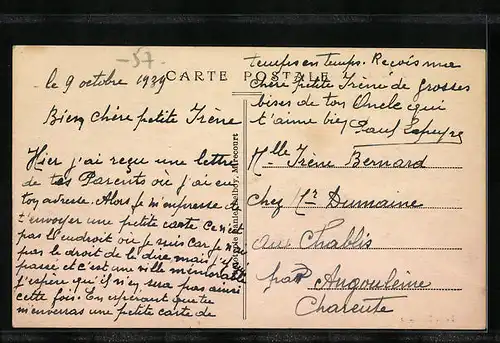 -57-
le 9 octobre 1939
CARTE POSTALE
Bien Chère petite Irène
Hier j'ai reçu une lettre
de tes Parents où j'ai eu
ton adresse. Alors je m'empresse de
t'envoyer une petite carte ce n'est
pas l'endroit ou je suis car je n'ai
pas le droit de l'dire mais j'y
passe et c'est une ville mémorable
j'espère qu'il n'en sera pas ainsi
cette fois. En espérant que tu
m'enverras une petite carte de
temps en temps. Reçois ma
chère petite Irène de grosses
bises de ton Oncle qui
t'aime bien Paul Lapeyre
Daniel Mirecourt
Mlle Irène Bernard
chez Mr Dumaine
au Chablis
par Angoulême
Charente